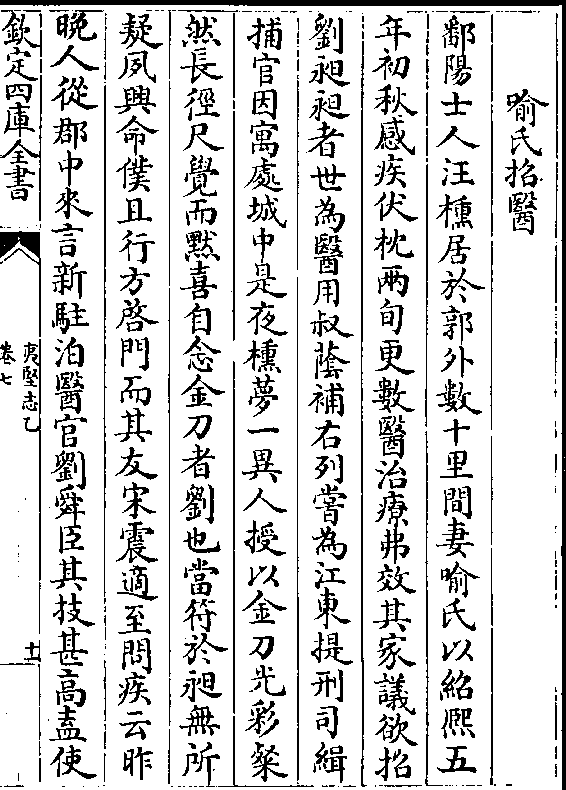 喻氏招醫
鄱陽士人汪櫄居於郭外數十里間妻喻氏以紹熈五
年初秋感疾伏枕兩旬更數醫治療弗效其家議欲招
劉昶昶者世為醫用叔蔭補右列嘗為江東提刑司緝
捕官因寓處城中是夜櫄夢一異人授以金刀光彩粲
然長徑尺覺而黙喜自念金刀者劉也當符於昶無所
疑夙興命僕且行方啓門而其友宋震適至問疾云昨
晩人從郡中來言新駐泊醫官劉舜臣其技甚高盍使
欽定四庫全書
夷堅志乙
卷七
十一